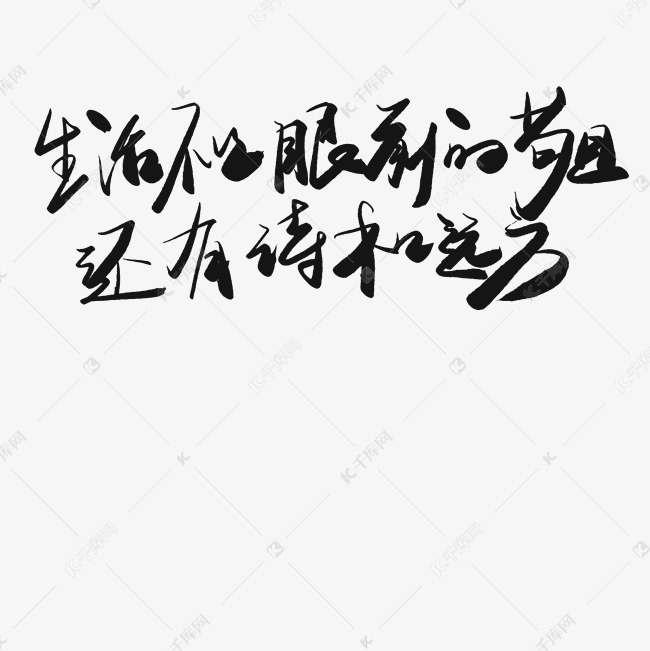 生活不止眼前的苟且
还有诗和远方
千库网